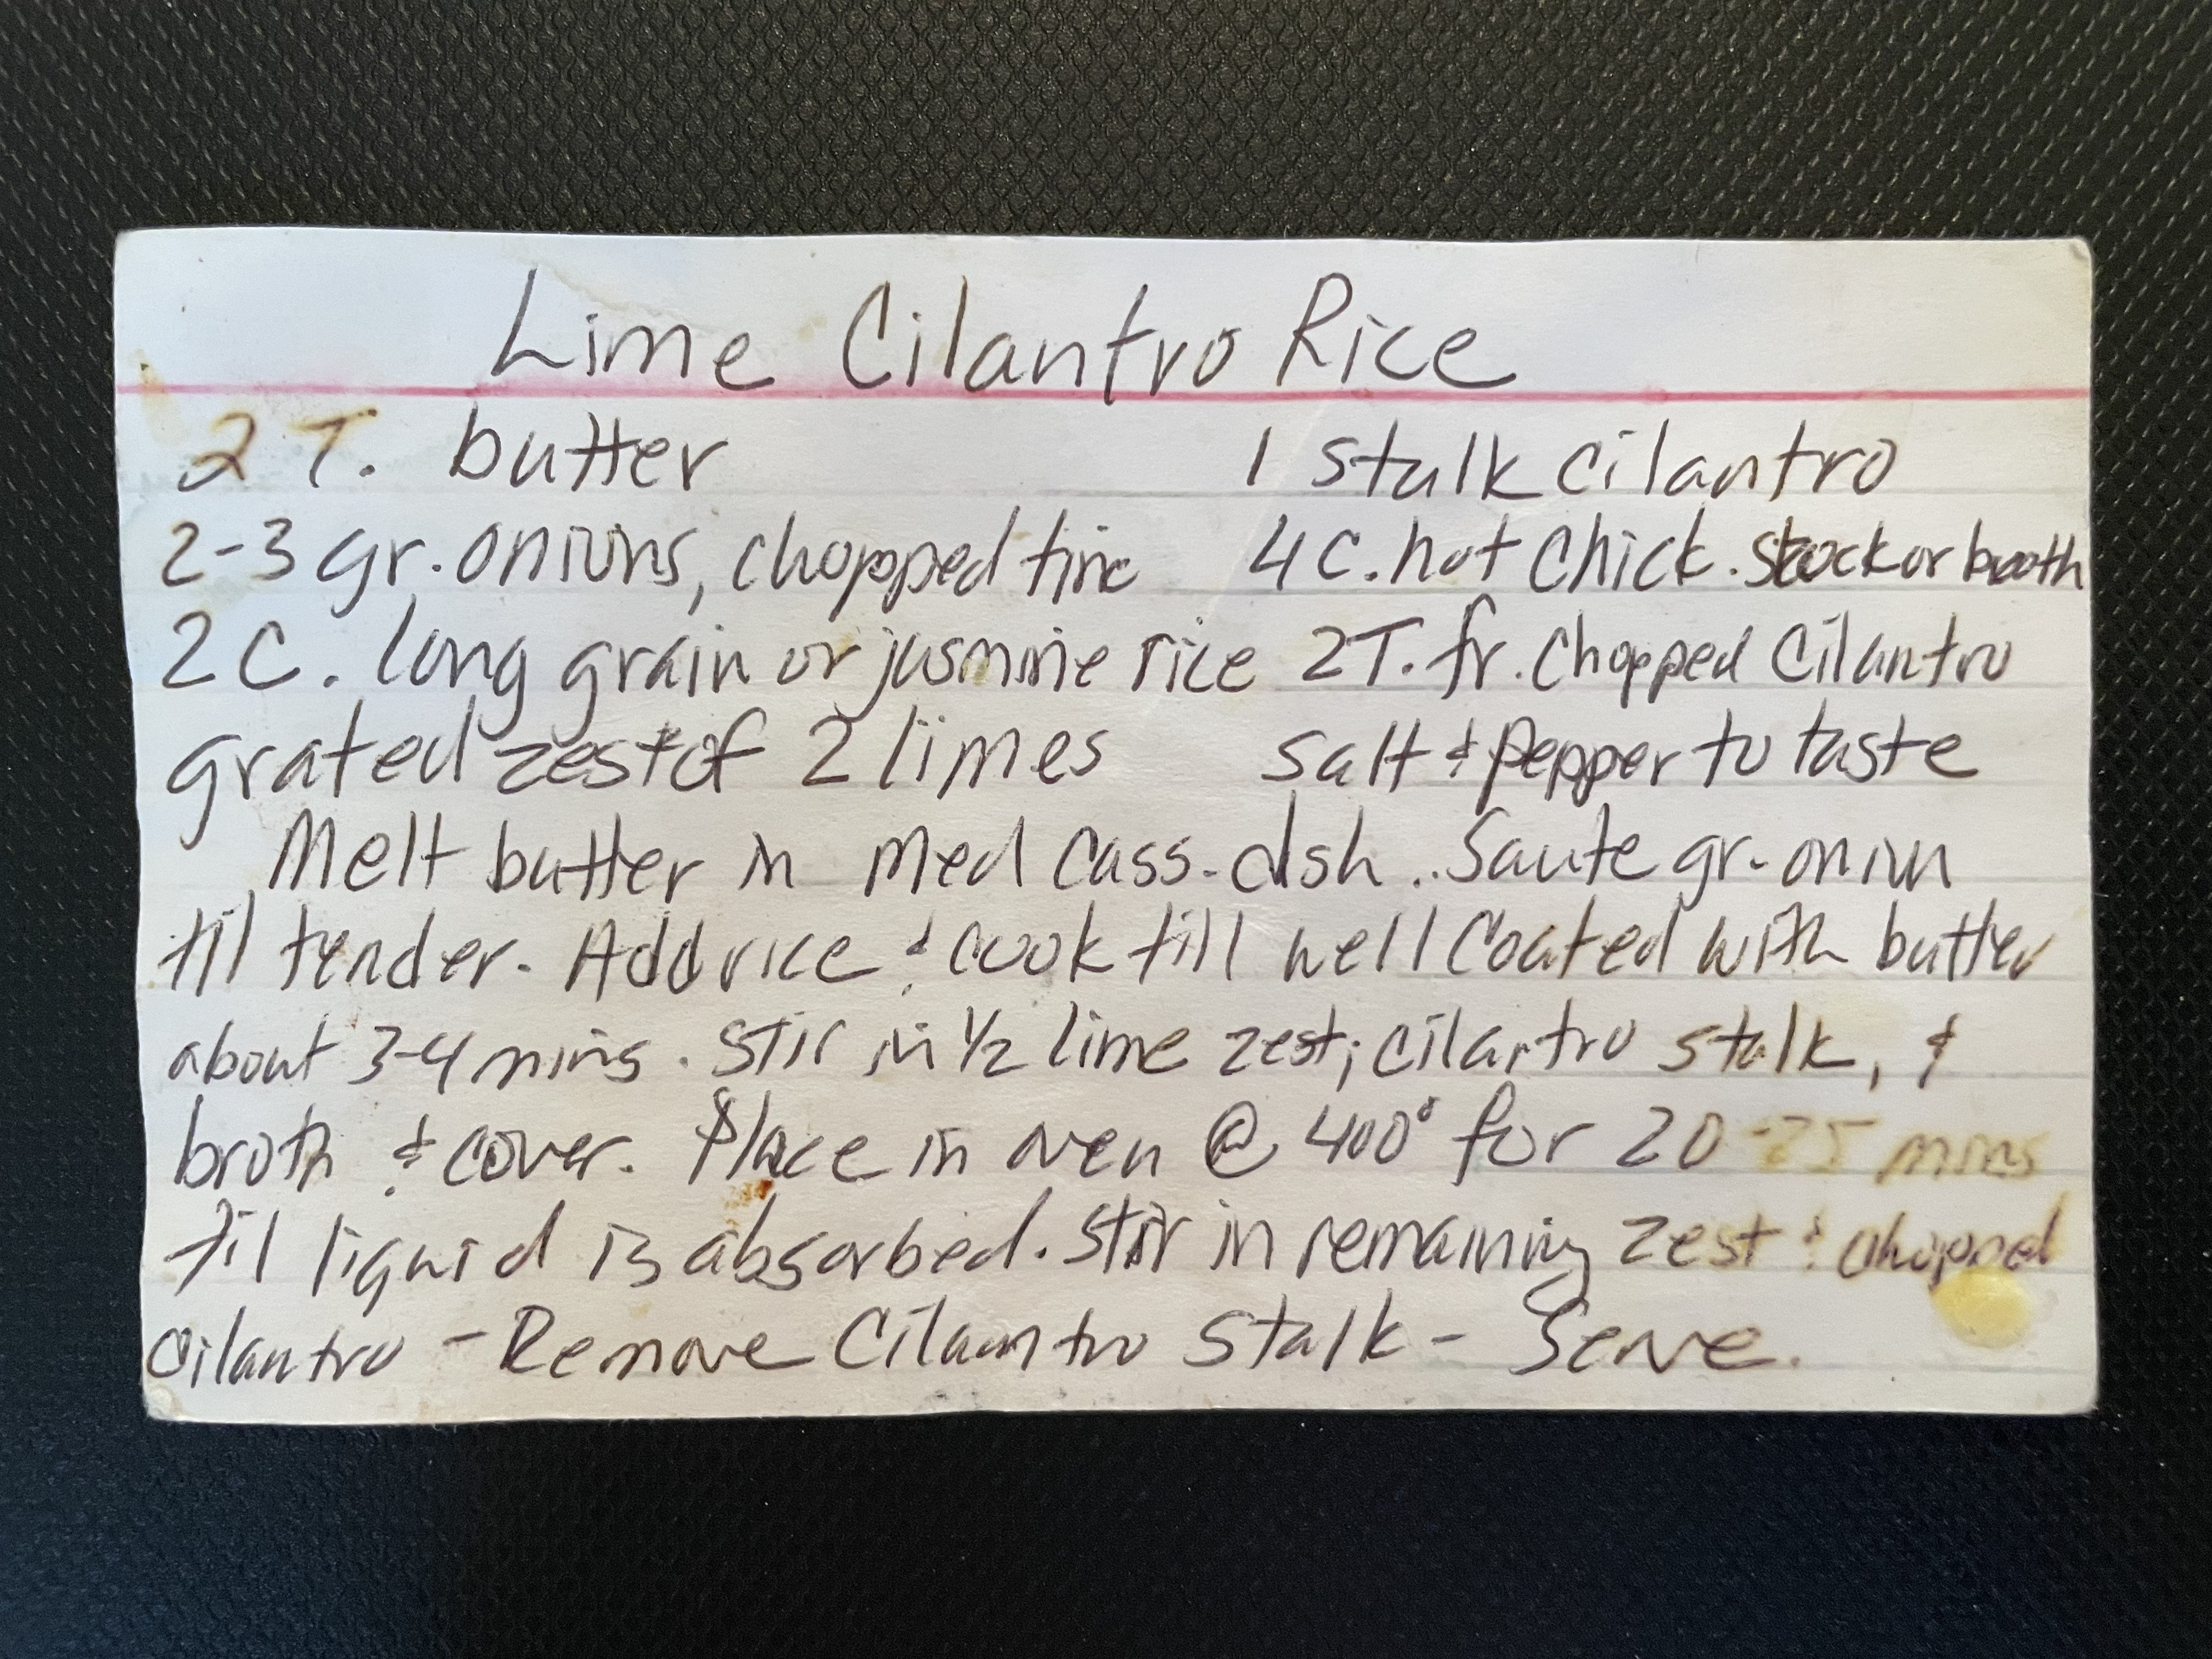 Lime Cilantro Rice
2 T. butter 1 stalk cilantro
2-3 gr. onions, chopped fine 4 C. hot chick. stock or broth
2 C. long grain or jasmine rice 2T. fr. chopped cilantro
grated zest of 2 limes salt & pepper to taste
Melt butter in med cass. dsh.. Saute gr. onion
til tender. Add rice & cook till well coated with butter
about 3-4 mins. Stir in 1/2 lime zest, cilantro stalk, &
broth & cover. Place in oven @ 400° for 20-25 mins
til liquid is absorbed. Stir in remaining zest & chopped
cilantro - Remove Cilantro Stalk - Serve.